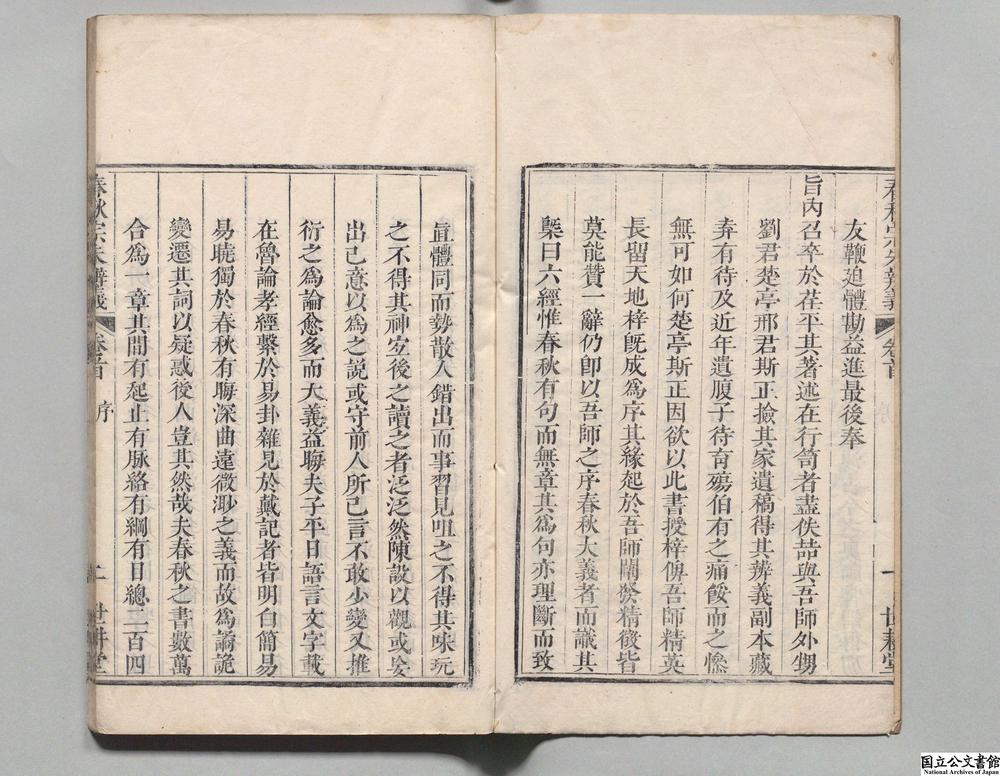 友鞭廹體勘益進最後奉
旨內召卒於荏平其著述在行笥者盡佚喆與吾師外甥
劉君楚亭邢君斯正撿其家遺稿得其辨義副本藏
弆有待及近年遺腹子待育殤伯有之痛餒而之慘
無可如何楚亭斯正因欲以此書授梓俾吾師精英
長留天地梓旣成爲序其緣起於吾師闡發精微皆
莫能贊一辭仍卽以吾師之序春秋大義者而識其
槩曰六經惟春秋有句而無章其爲句亦理斷而致
春秋宗朱辨義
卷首
一
世耕堂
眞體同而勢散人錯出而事習見咀之不得其味玩
之不得其神宐後之讀之者泛泛然陳設以觀或妄
出己意以爲之説或守前人所已言不敢少變又推
衍之爲論愈多而大義益晦夫子平日語言文字載
在魯論孝經繫於易卦雜見於戴記者皆明白簡易
易曉獨於春秋有晦深曲遠微渺之義而故爲譎詭
變遷其詞以疑惑後人豈其然哉夫春秋之書數萬
合爲一章其間有起止有脉絡有綱有目總二百四
春秋宗朱辨義
卷首
序
二
世耕堂
国立公文書館
National Archives of Japan